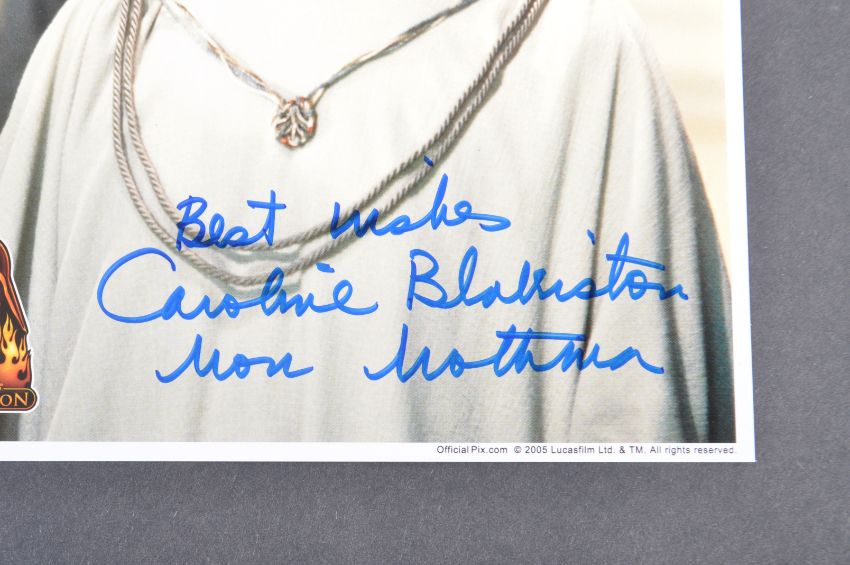 Best wishes
Caroline Blakiston
Mon Mothma
ON
OfficialPix.com © 2005 Lucasfilm Ltd. & TM. All rights reserved.